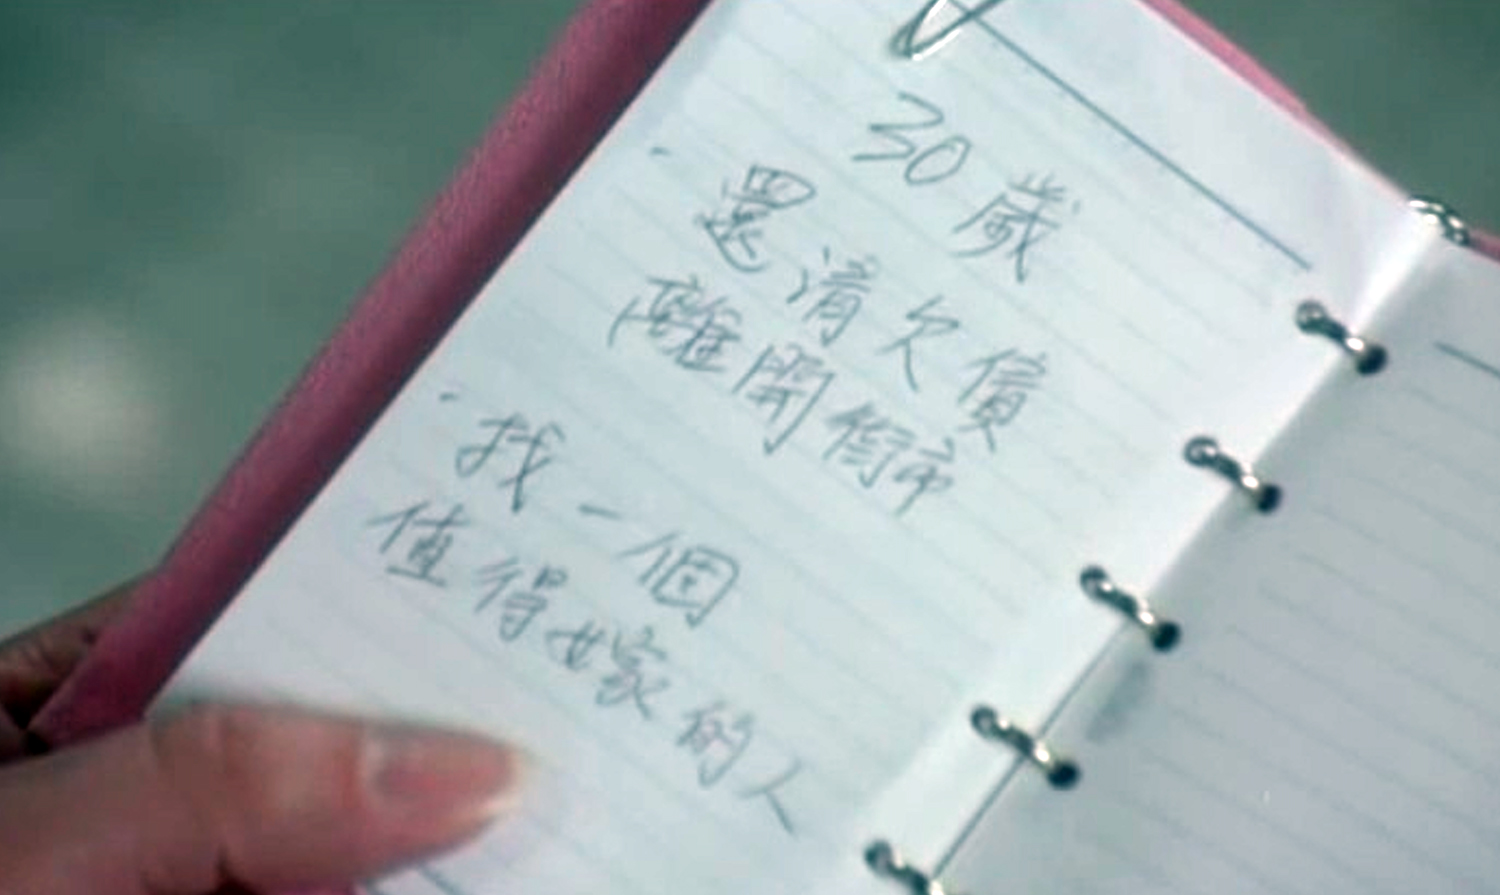 30歲
· 還清欠債
離開街市
· 找一個
值得嫁的人